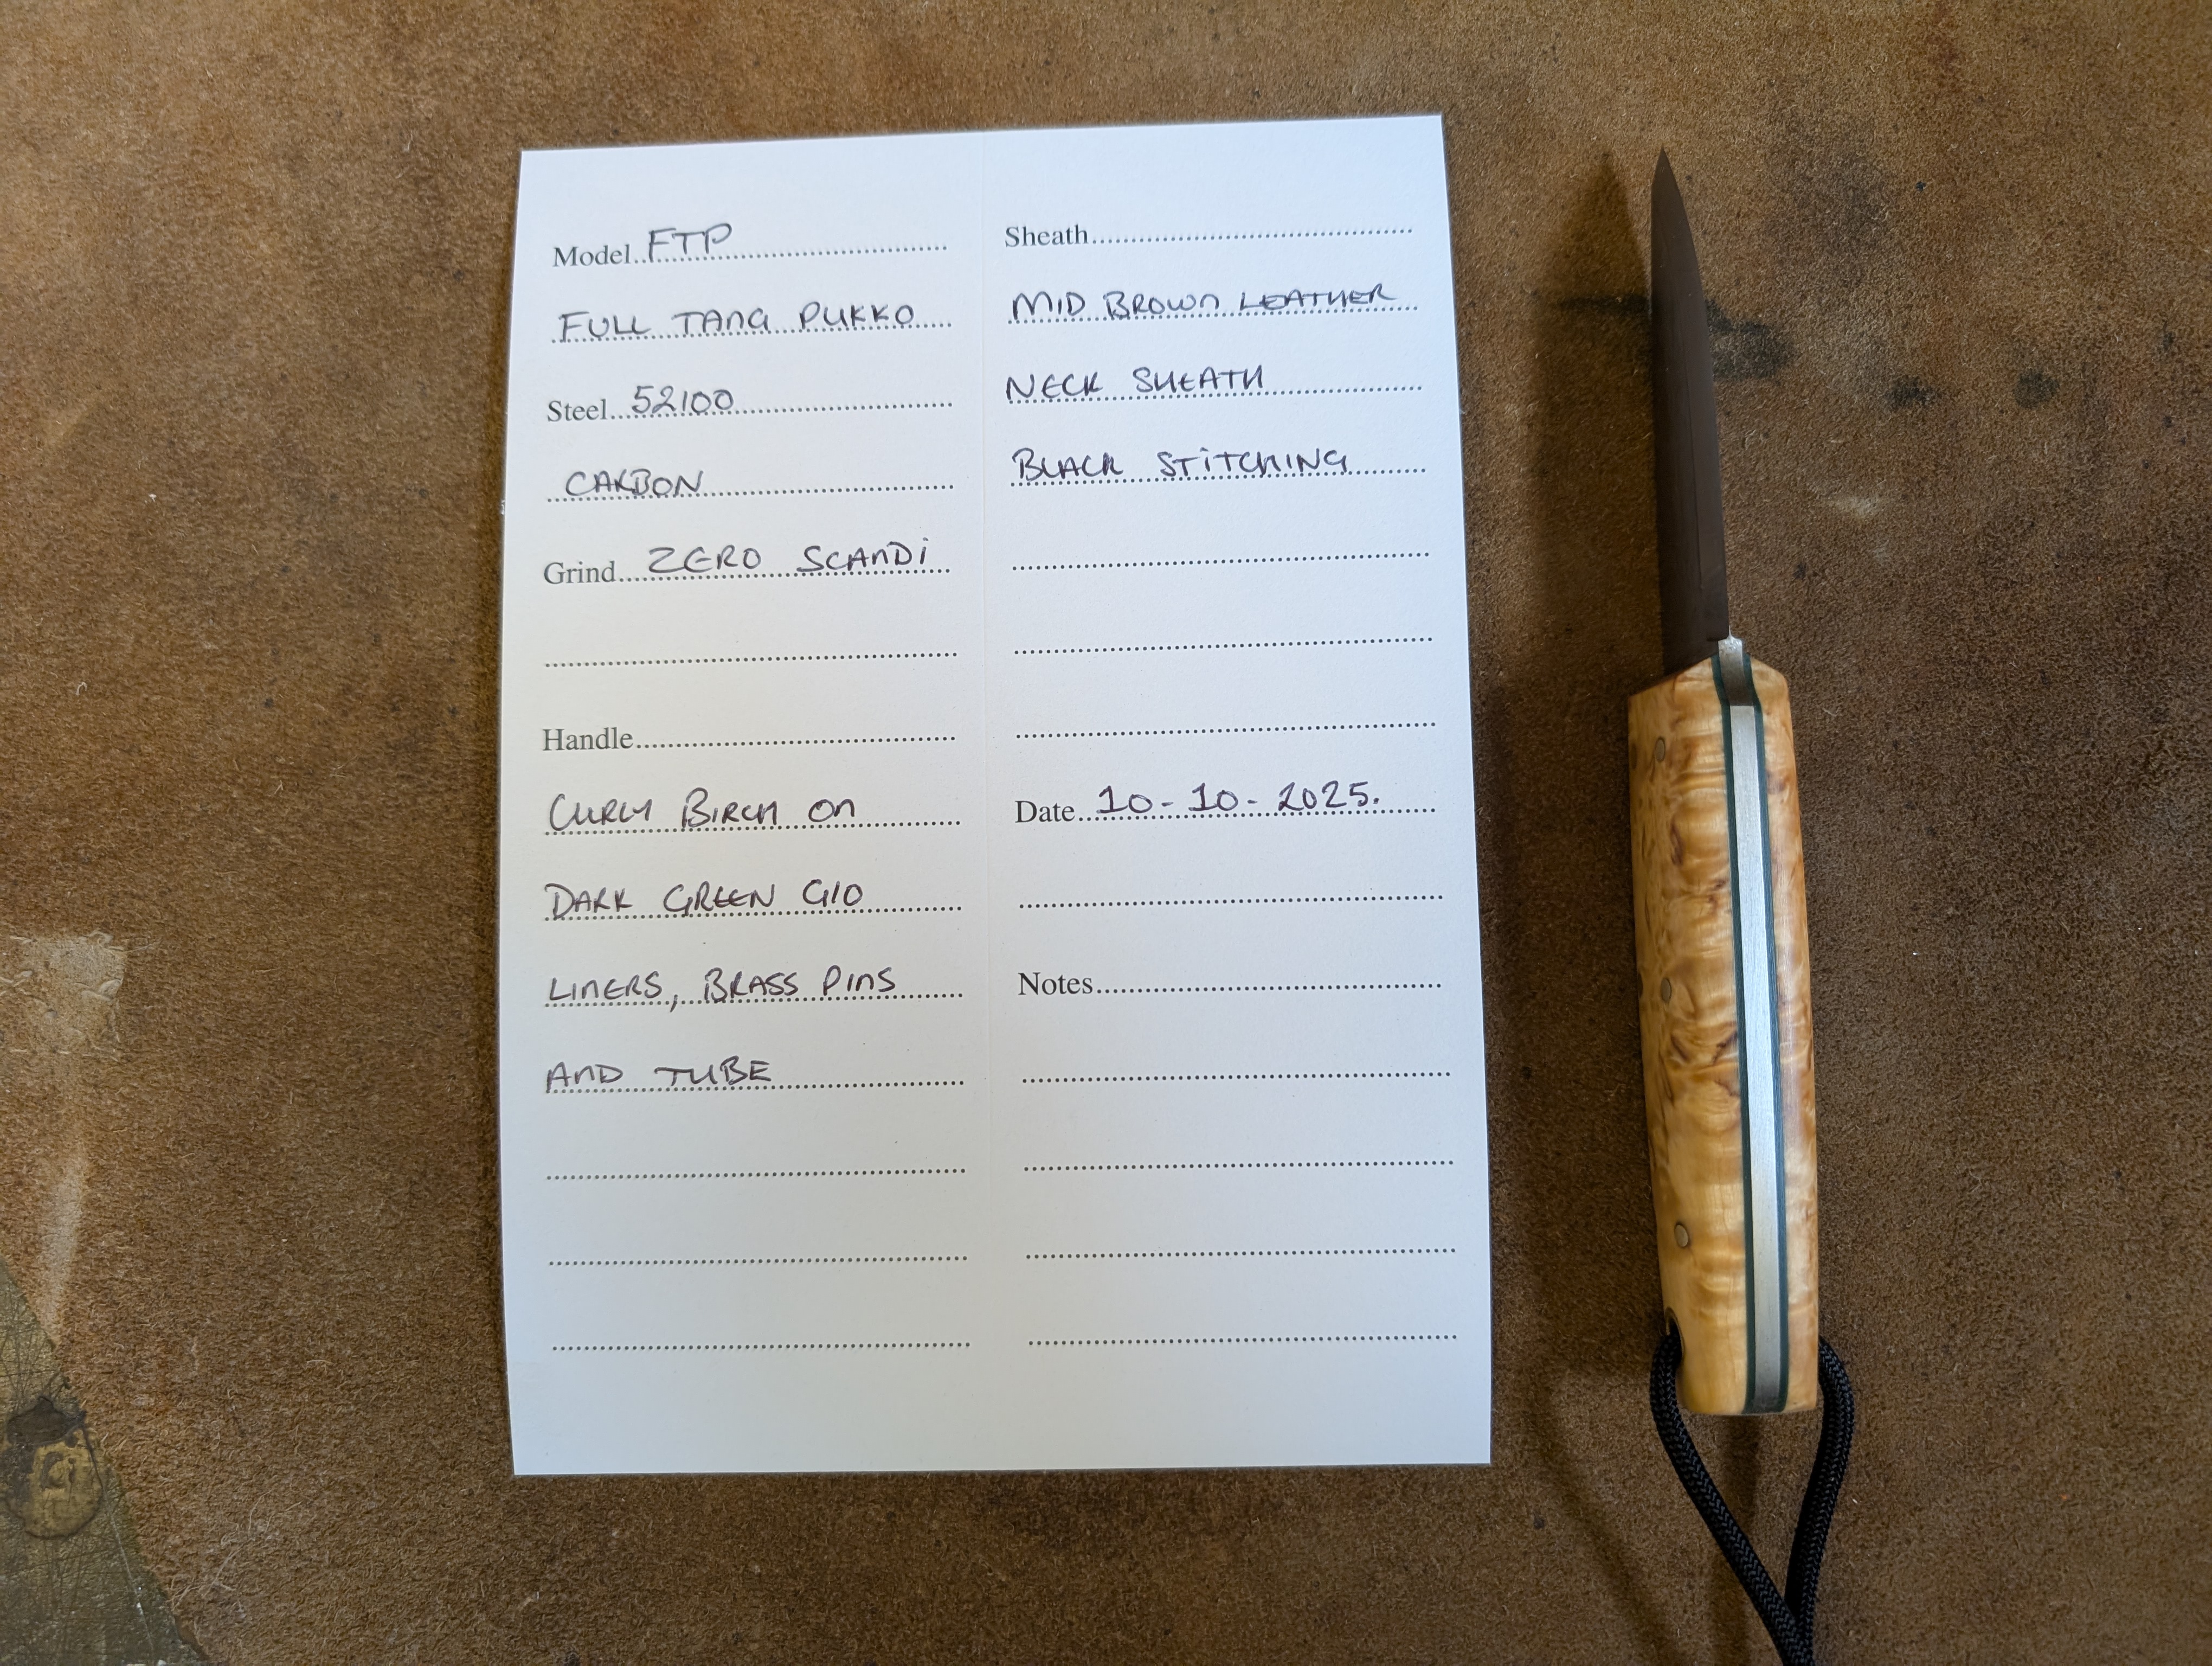 Model FTP
FULL TANG PUKKO
Steel 52100
CARBON
Grind ZERO SCANDi
Handle
CURLY BIRCH ON
DARK GREEN G10
LINERS, BRASS PINS
AND TUBE
Sheath
MID BROWN LEATHER
NECK SHEATH
BLACK STiTCHING
Date 10-10-2025.
Notes